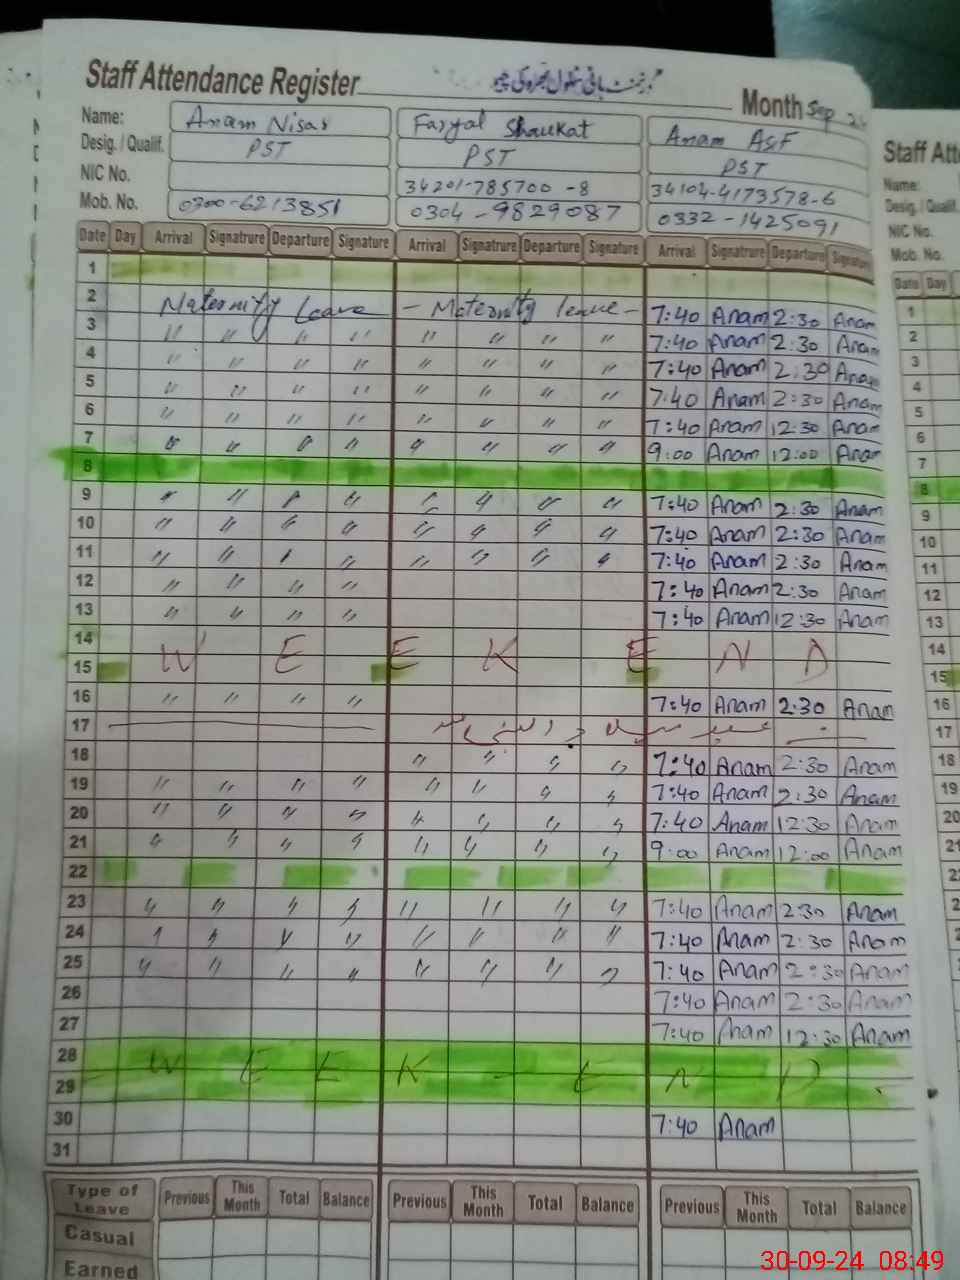 Staff Attendance Register
Month Sep 24
Name: Anam Nisar Faryal Shaukat Anam Asif
Desig. / Qualif. PST PST PST
NIC No. 34201-785700-8 34104-4173578-6
Mob. No. 0300-6213851 0304-9829087 0332-1425091
Date Day Arrival Signatrure Departure Signature Arrival Signatrure Departure Signature Arrival Signatrure Departure Signature
1
2 Maternity Leave - Maternity leave - 7:40 Anam 2:30 Anam
3 " " " " " " " " 7:40 Anam 2:30 Anam
4 " " " " " " " " 7:40 Anam 2:30 Anam
5 " " " " " " " " 7:40 Anam 2:30 Anam
6 " " " " " " " " 7:40 Anam 12:30 Anam
7 " " " " " " " " 9:00 Anam 12:00 Anam
8
9 " " " " " " " " 7:40 Anam 2:30 Anam
10 " " " " " " " " 7:40 Anam 2:30 Anam
11 " " " " " " " " 7:40 Anam 2:30 Anam
12 " " " " 7:40 Anam 2:30 Anam
13 " " " " 7:40 Anam 12:30 Anam
14
15 W E E K E N D
16 " " " " 7:40 Anam 2:30 Anam
17 عید میلاد النبی
18 " " " " 7:40 Anam 2:30 Anam
19 " " " " " " " " 7:40 Anam 2:30 Anam
20 " " " " " " " " 7:40 Anam 12:30 Anam
21 " " " " " " " " 9:00 Anam 12:00 Anam
22
23 " " " " " " " " 7:40 Anam 2:30 Anam
24 " " " " " " " " 7:40 Anam 2:30 Anam
25 " " " " " " " " 7:40 Anam 2:30 Anam
26 7:40 Anam 2:30 Anam
27 7:40 Anam 12:30 Anam
28 W E E K - E N D
29
30 7:40 Anam
31
Type of Leave Previous This Month Total Balance Previous This Month Total Balance Previous This Month Total Balance
Casual
Earned
Staff Att
Name:
Desig. / Qualif.
NIC No.
Mob. No.
Date Day
1
2
3
4
5
6
7
8
9
10
11
12
13
14
15
16
17
18
19
20
21
30-09-24 08:49